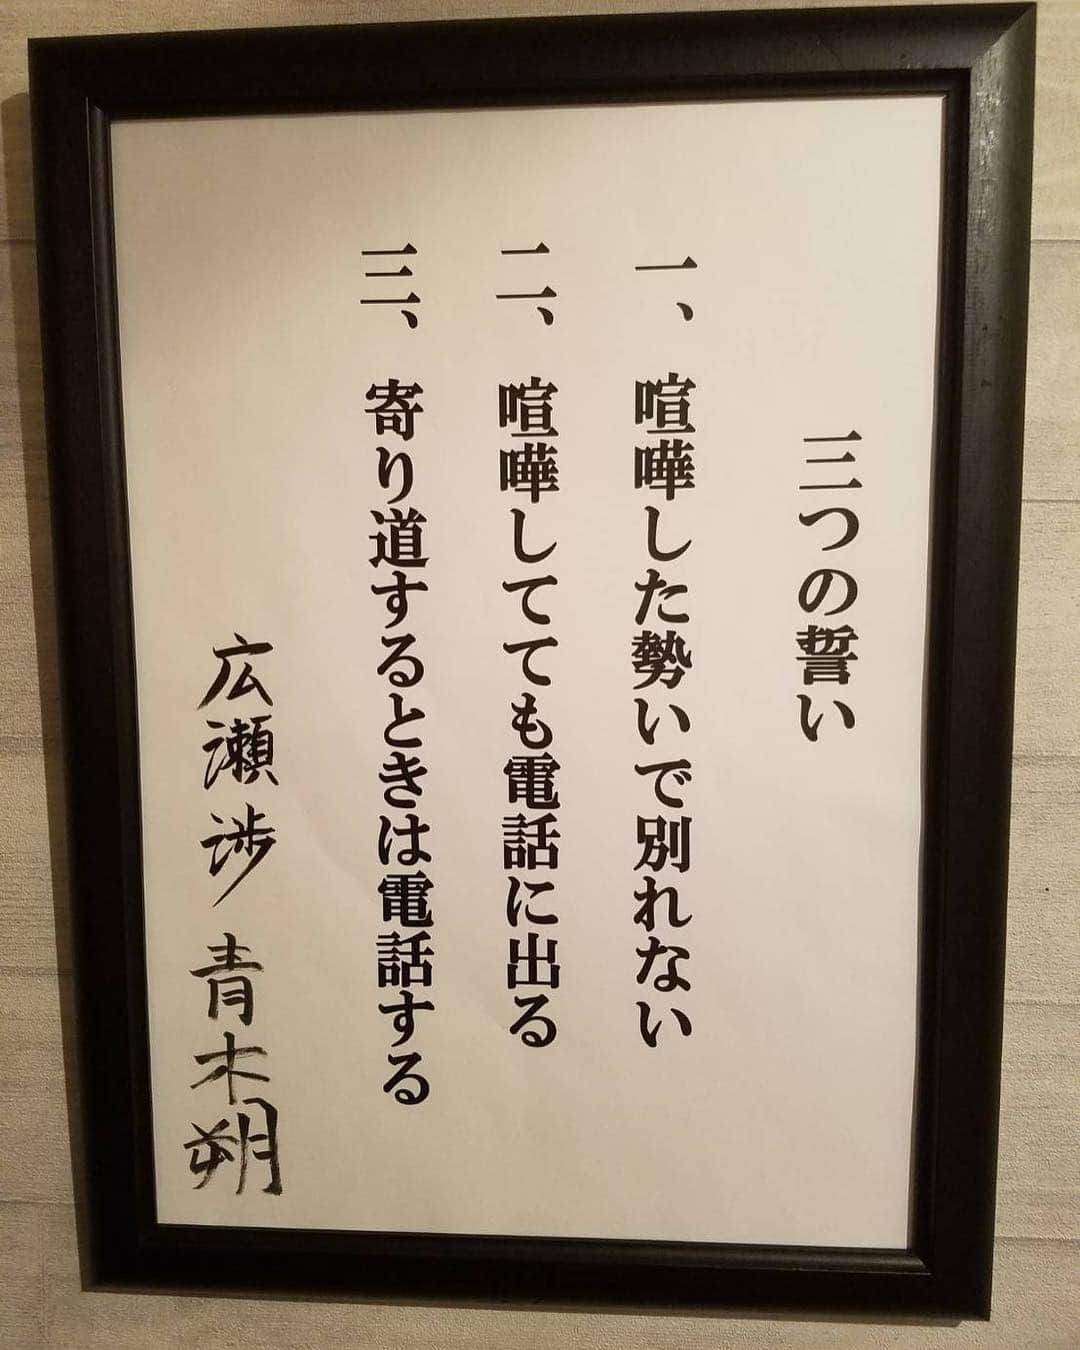 三つの誓い
一、喧嘩した勢いで別れない
二、喧嘩してても電話に出る
三、寄り道するときは電話する
広瀬渉 青木朔